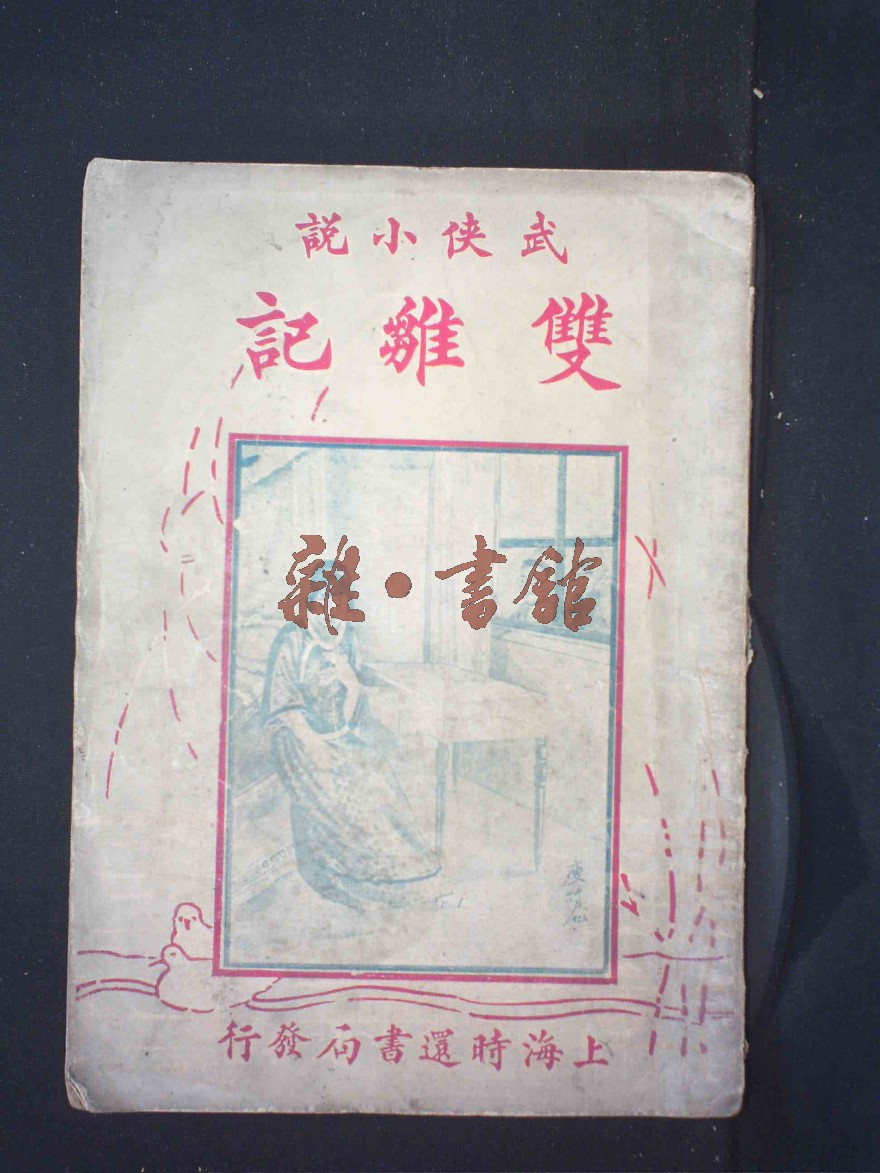 武俠小説
雙雛記
雜·書館
上海時還書局發行